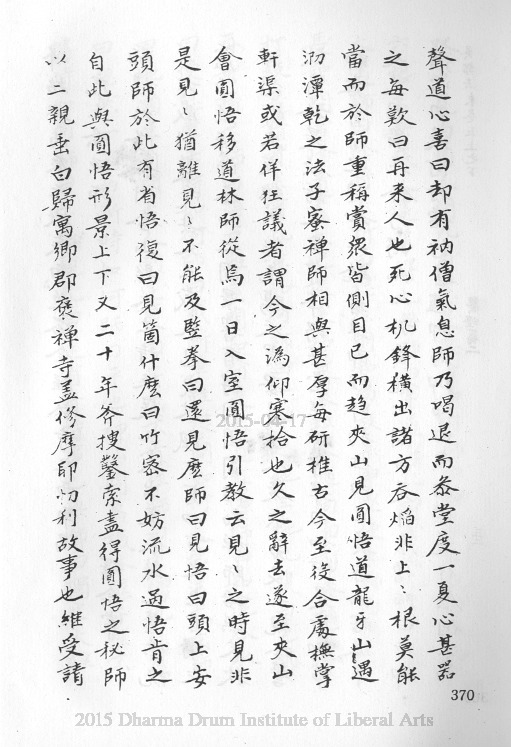 聲道心喜曰却有衲僧氣息師乃喝退而叅堂度一夏心甚器
之每歎曰再来人也死心机鋒橫出諸方吞焰非上〻根莫能
當而於師重稱賞衆皆側目已而趋夾山見圓悟道龍牙山遇
泐潭乾之法子蜜禅師相與甚厚每研推古今至投合處撫掌
軒渠或若佯狂議者謂今之溈仰寒拾也久之辭去遂至夾山
會圓悟移道林師從焉一日入室圓悟引教云見〻之時見非
是見〻猶離見〻不能及豎拳曰還見麽師曰見悟曰頭上安
頭師於此有省悟復曰見箇什麽曰竹密不妨流水過悟肯之
自此與圓悟形景上下又二十年斧搜鑿索盡得圓悟之秘師
以二親垂白歸寓鄉郡褒禅寺盖修摩耶忉利故事也維受請
370
2015-04-17
2015 Dharma Drum Institute of Liberal Arts